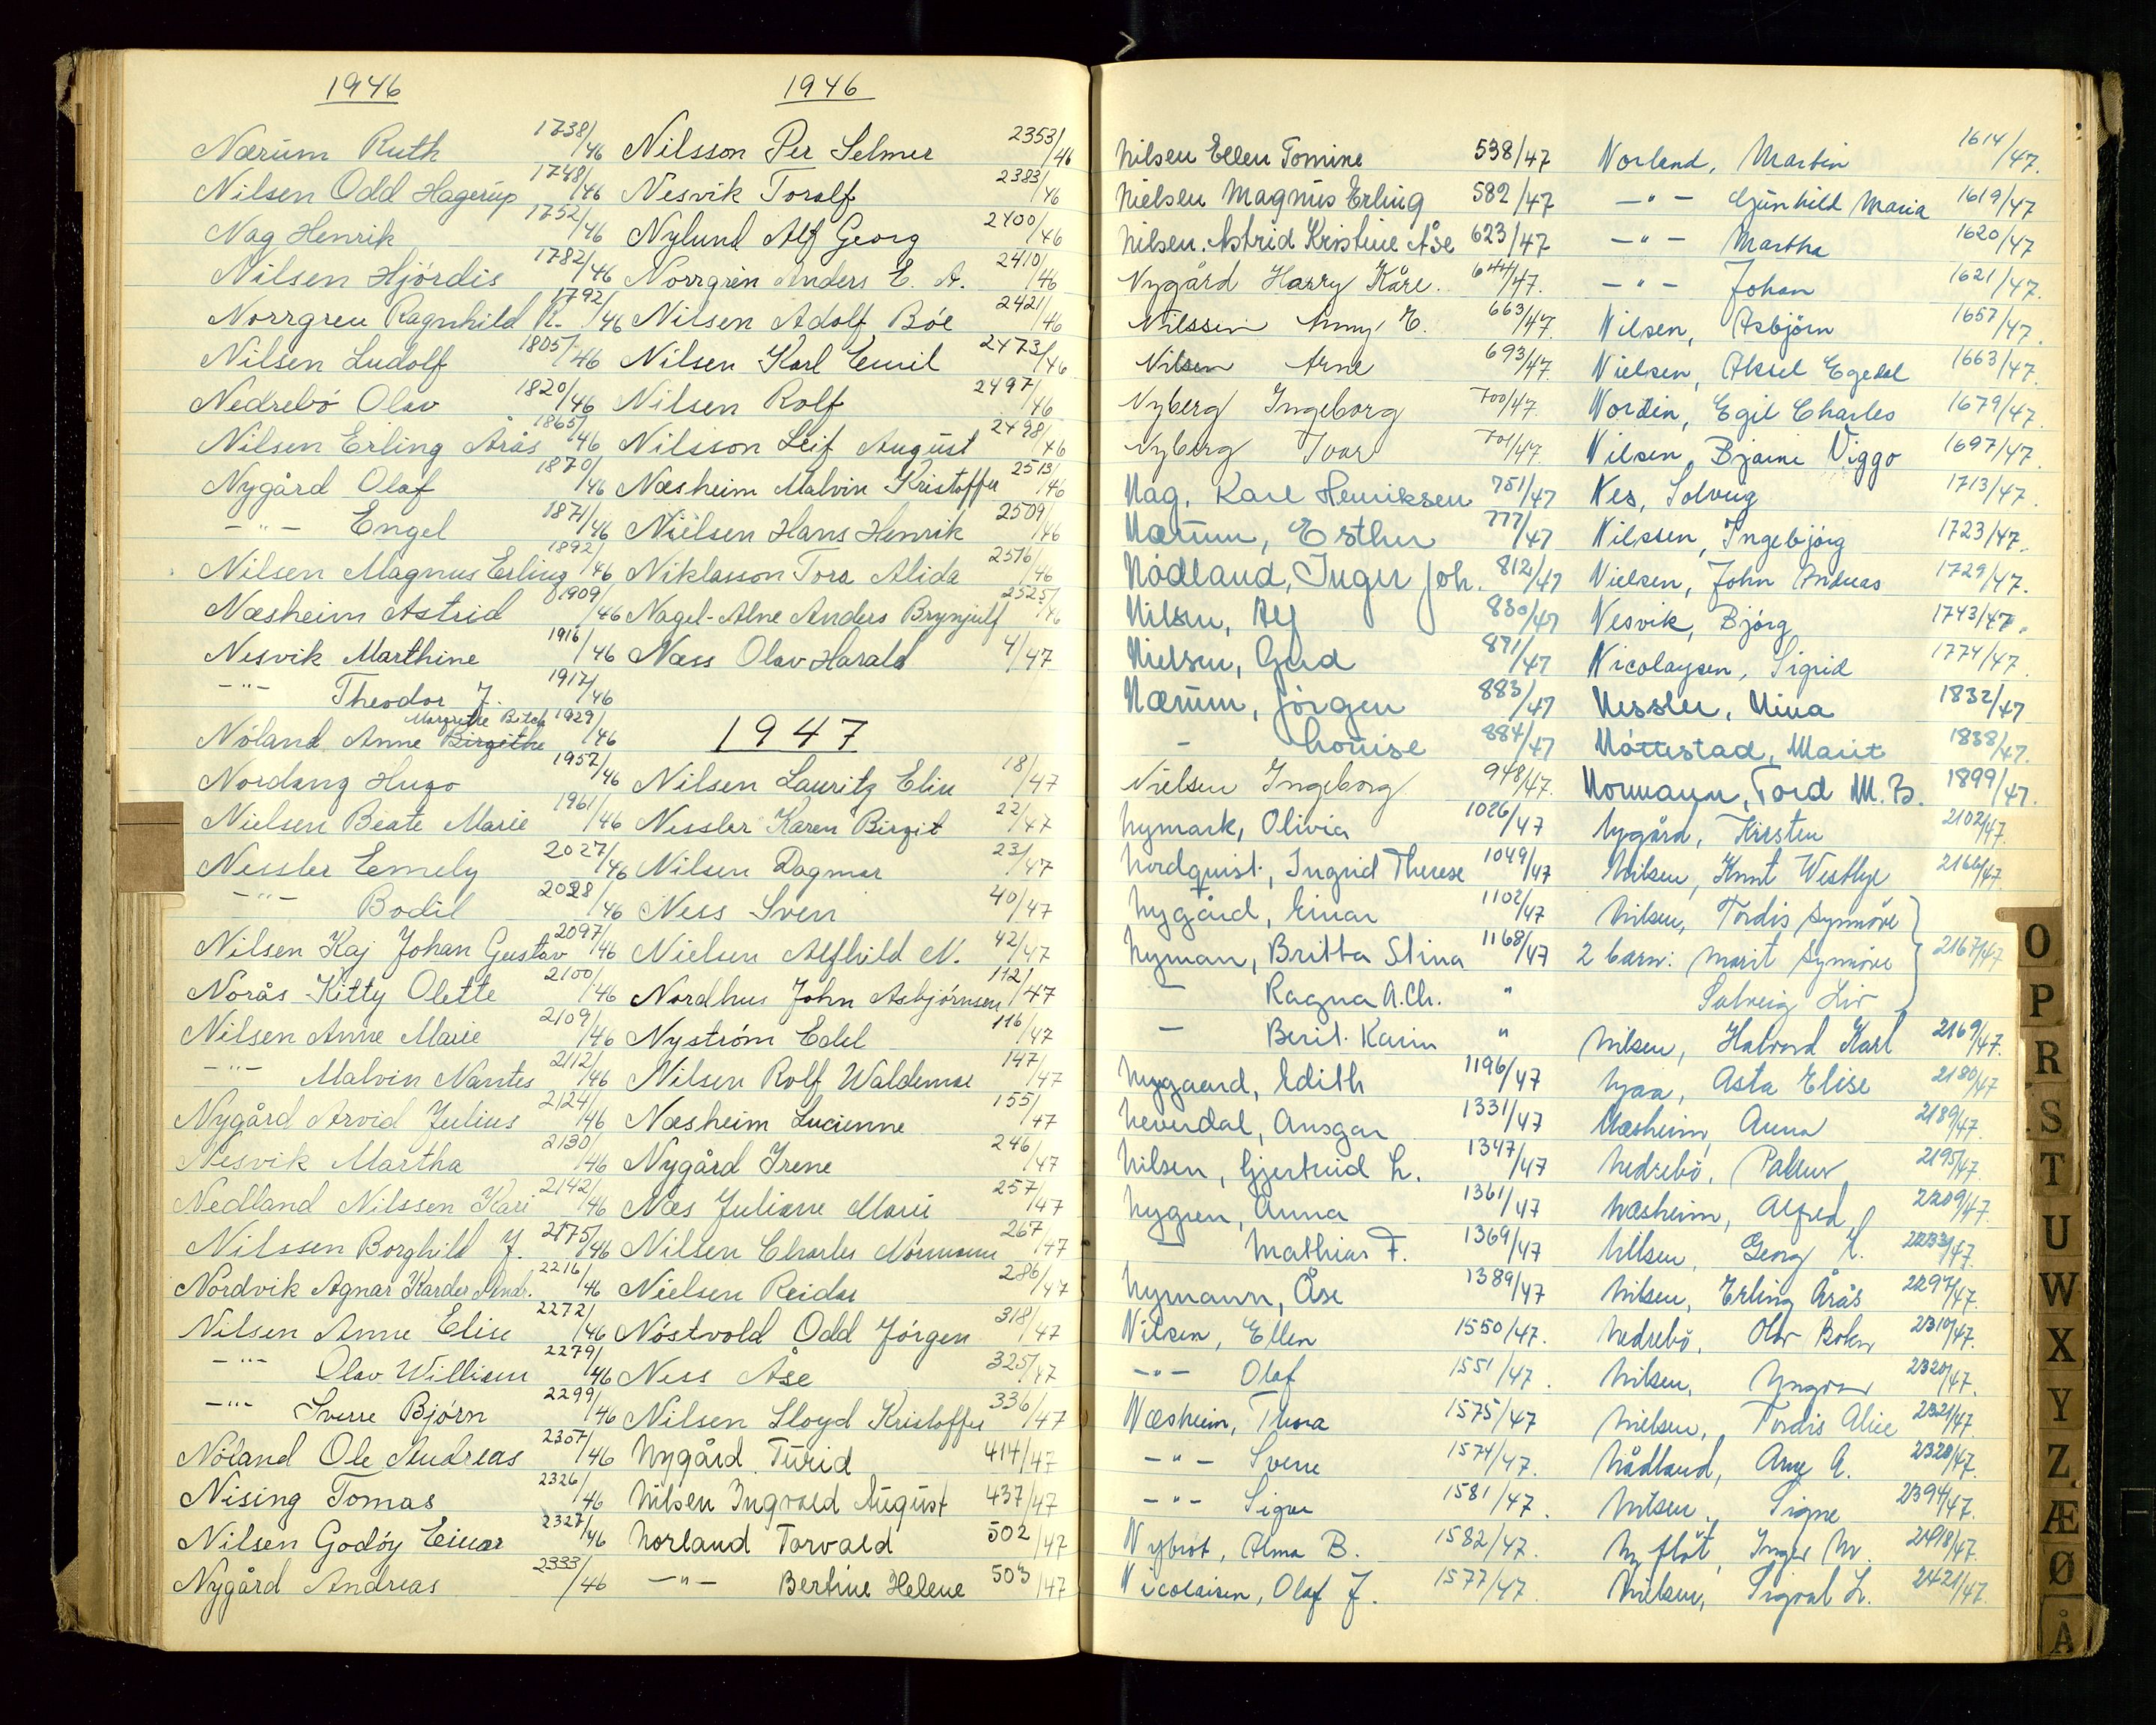 1946
Nærum Ruth 1738/46
Nilsen Odd Hagerup 1748/46
Nag Henrik 1752/46
Nilsen Hjördis 1782/46
Norrgren Ragnhild K. 1792/46
Nilsen Ludolf 1805/46
Nedrebö Olav 1820/46
Nilsen Erling Årås 1865/46
Nygård Olaf 1870/46
-"- Engel 1871/46
Nilsen Magnus Erling 1892/46
Næsheim Astrid 1909/46
Nesvik Marthine 1916/46
-"- Theodor J. 1917/46
Nöland Anne Birgithe Margrethe 1929/46
Nordang Hugo 1952/46
Nielsen Beate Marie 1961/46
Nessler Emely 2027/46
-"- Bodil 2028/46
Nilsen Kaj Johan Gustav 2097/46
Norås Kitty Olette 2100/46
Nilsen Anne Marie 2109/46
-"- Malvin Nantes 2112/46
Nygård Arvid Julius 2124/46
Nesvik Martha 2130/46
Nedland Nilssen Kari 2142/46
Nilssen Borghild J. 2175/46
Nordvik Agnar Karder Andr. 2216/46
Nilsen Anne Elise 2272/46
-"- Olav William 2279/46
-"- Sverre Björn 2299/46
Nöland Ole Andreas 2307/46
Nising Tomas 2326/46
Nilsen Godöy Einar 2327/46
Nygård Andreas 2333/46
1946
Nilsson Per Selmer 2353/46
Nesvik Toralf 2383/46
Nylund Alf Georg 2400/46
Norrgren Anders E. A. 2410/46
Nilsen Adolf Böe 2421/46
Nilsen Karl Emil 2473/46
Nilsen Rolf 2497/46
Nilsson Leif August 2498/46
Næsheim Malvin Kristoffer 2513/46
Nielsen Hans Henrik 2509/46
Niklasson Tora Alida 2516/46
Nagel-Alne Anders Brynjulf 2525/46
Næss Olav Harald 4/47
1947
Nilsen Lauritz Elin 18/47
Nessler Karen Birgit 22/47
Nilsen Dagmar 23/47
Ness Sven 40/47
Nielsen Alfhild N. 42/47
Nordhus John Asbjörnsen 112/47
Nyström Edel 116/47
Nilsen Rolf Waldemar 147/47
Næsheim Lucienne 155/47
Nygård Irene 246/47
Næs Julianne Marie 257/47
Nilsen Charles Normann 267/47
Nielsen Reidar 286/47
Nöstvold Odd Jörgen 318/47
Ness Åse 325/47
Nilsen Lloyd Kristoffer 336/47
Nygård Turid 414/47
Nilsen Ingvald August 437/47
Norland Torvald 502/47
-"- Bertine Helene 503/47
Nilsen Ellen Tomine 538/47
Nielsen Magnus Erling 582/47
Nilsen. Astrid Kristine Åse 623/47
Nygård Harry Kåre. 644/47.
Nilssen Anny E. 663/47.
Nilsen Arne 693/47.
Nyberg Ingeborg 700/47.
Nyberg Ivar 701/47.
Nag, Karl Henriksen 751/47
Nærum, Esther 777/47
Nödland, Inger Joh. 812/47
Nilsen, Alf 830/47
Nielsen, Gerd 871/47
Nærum, Jörgen 883/47
- Louise 884/47
Nielsen Ingeborg 948/47.
Nymark, Olivia 1026/47
Nordquist, Ingrid Therese 1049/47
Nygård, Einar 1102/47
Nyman, Britta Stina 1168/47
- Ragna A.Ch. "
- Berit Karin "
Nygaard, Edith 1196/47
Neverdal, Ansgar 1331/47
Nilsen, Gjertrud L. 1347/47
Nygren, Anna 1361/47
- Mathias F. 1369/47
Nymann, Åse 1389/47
Nilsen, Ellen 1550/47.
-"- Olaf 1551/47.
Næsheim, Thora 1575/47
-"- Sverre 1574/47.
-"- Signe 1581/47.
Nybrot, Alma B. 1582/47.
Nicolaisen, Olaf J. 1577/47
Norland, Martin 1614/47.
-"- Gunhild Maria 1619/47
-"- Martha 1620/47
-"- Johan 1621/47.
Nilsen, Asbjörn 1657/47.
Nielsen, Aksel Egedal 1663/47.
Nordin, Egil Charles 1679/47.
Nilsen, Bjarne Viggo 1697/47.
Nes, Solveig 1713/47.
Nilssen, Ingebjörg 1723/47.
Nielsen, John Andreas 1729/47.
Nesvik, Björg 1743/47.
Nicolaysen, Sigrid 1774/47.
Nessler, Nina 1832/47
Nöttestad, Marit 1838/47.
Normann, Tord M. B. 1899/47.
Nygård, Kirsten 2102/47.
Nilsen, Knut Westlye 2166/47.
Nilsen, Tordis Synnöve
2 barn: Marit Synnöve 2167/47
Solveig Liv
Nilsen, Halvard Karl 2169/47.
Njaa, Asta Elise 2180/47
Næsheim, Anna 2189/47.
Nedrebö, 2195/47.
Næsheim, Alfred 2209/47.
Nilsen, Georg 2233/47.
Nilsen, Erling Årås 2297/47.
Nedrebö, Olav 2310/47.
Nilsen, Yngvar 2320/47.
Nielsen, Tordis Alice 2321/47.
Nådland, Arne A. 2328/47.
Nilsen, Signe 2394/47.
Nyflöt, Inger M. 2418/47.
Nielsen, Sigval L. 2421/47.
O
P
R
S
T
U
W
X
Y
Z
Æ
Ø
Å